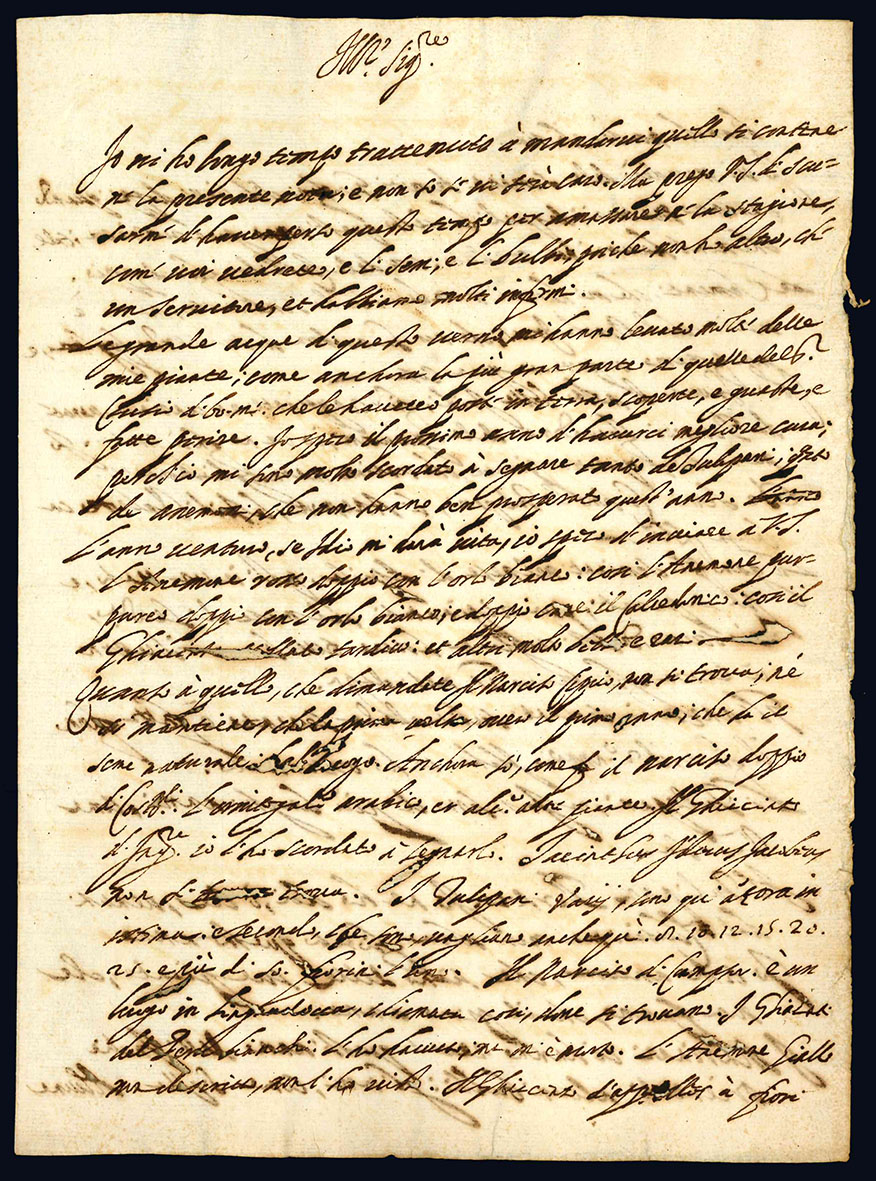 Ill.re Sig.re
Io mi ho longo tempo trattenuto à mandarvi quello si contiene
ne la presente nota; e non so se vi sarà caro. Ma prego V.S. di scu-
sarmi d'haver perso questo tempo per amassare ne la stagione,
come voi vedrete, e li semi, e li bulbi, poiche non ho altro, che
un servitore, et habbiamo molti infermi.
Le grande acque di questo verno mi hanno levato molte delle
mie piante; come anchora la più gran parte di quelle del S.r
Clusio di bo. me. che le havete poste in terra, scoperte, e guaste, e
fatte perire. Io spero il prossimo anno d'haverci megliore cura;
perch'io mi sono molto scordato à segnare tanto de Tulipani,
de anemoni, che non hanno ben prosperato quest'anno.
L'anno venturo, se Idio mi darà vita, io spero d'inviare a V.S.
l'Anemone rosso doppio con l'orlo bianco: cosi l'Anemone pur-
pureo doppio con l'orlo bianco, e doppio come il Calcedonico: cosi il
Ghiacinto stellato tardivo: et altri molto belli e rari.
Quanto à quello, che dimandate Il Narciso non si trova; né
si mantiene, che la prima volta, overo il primo anno; che da il
seme naturale luogo. Anchora come il narciso doppio
di l'ornitogalo arabico, et alc.e altre piante. Il Ghiacinto
d' io l'ho scordato à segnarlo. Iacinthus
non si trova. I Tulipani Varij, sono qui ancora in
istima. e secondo, che sono, vagliano anche qui. 8. 10. 12. 15. 20.
25. e più di 50. fiorini l'uno. Il Narciso di è un
luogo in Linguadocca, chiamato cosi, dove si trovano. I Ghiacinti
del bianchi. l'ho havuto, ma mi è morto. L'Anemone Giallo
non l'ho visto. Il Ghiacinto à fiori